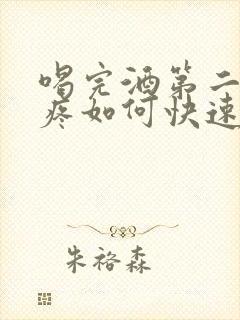 喝完酒第二
疼如何快速
朱裕森